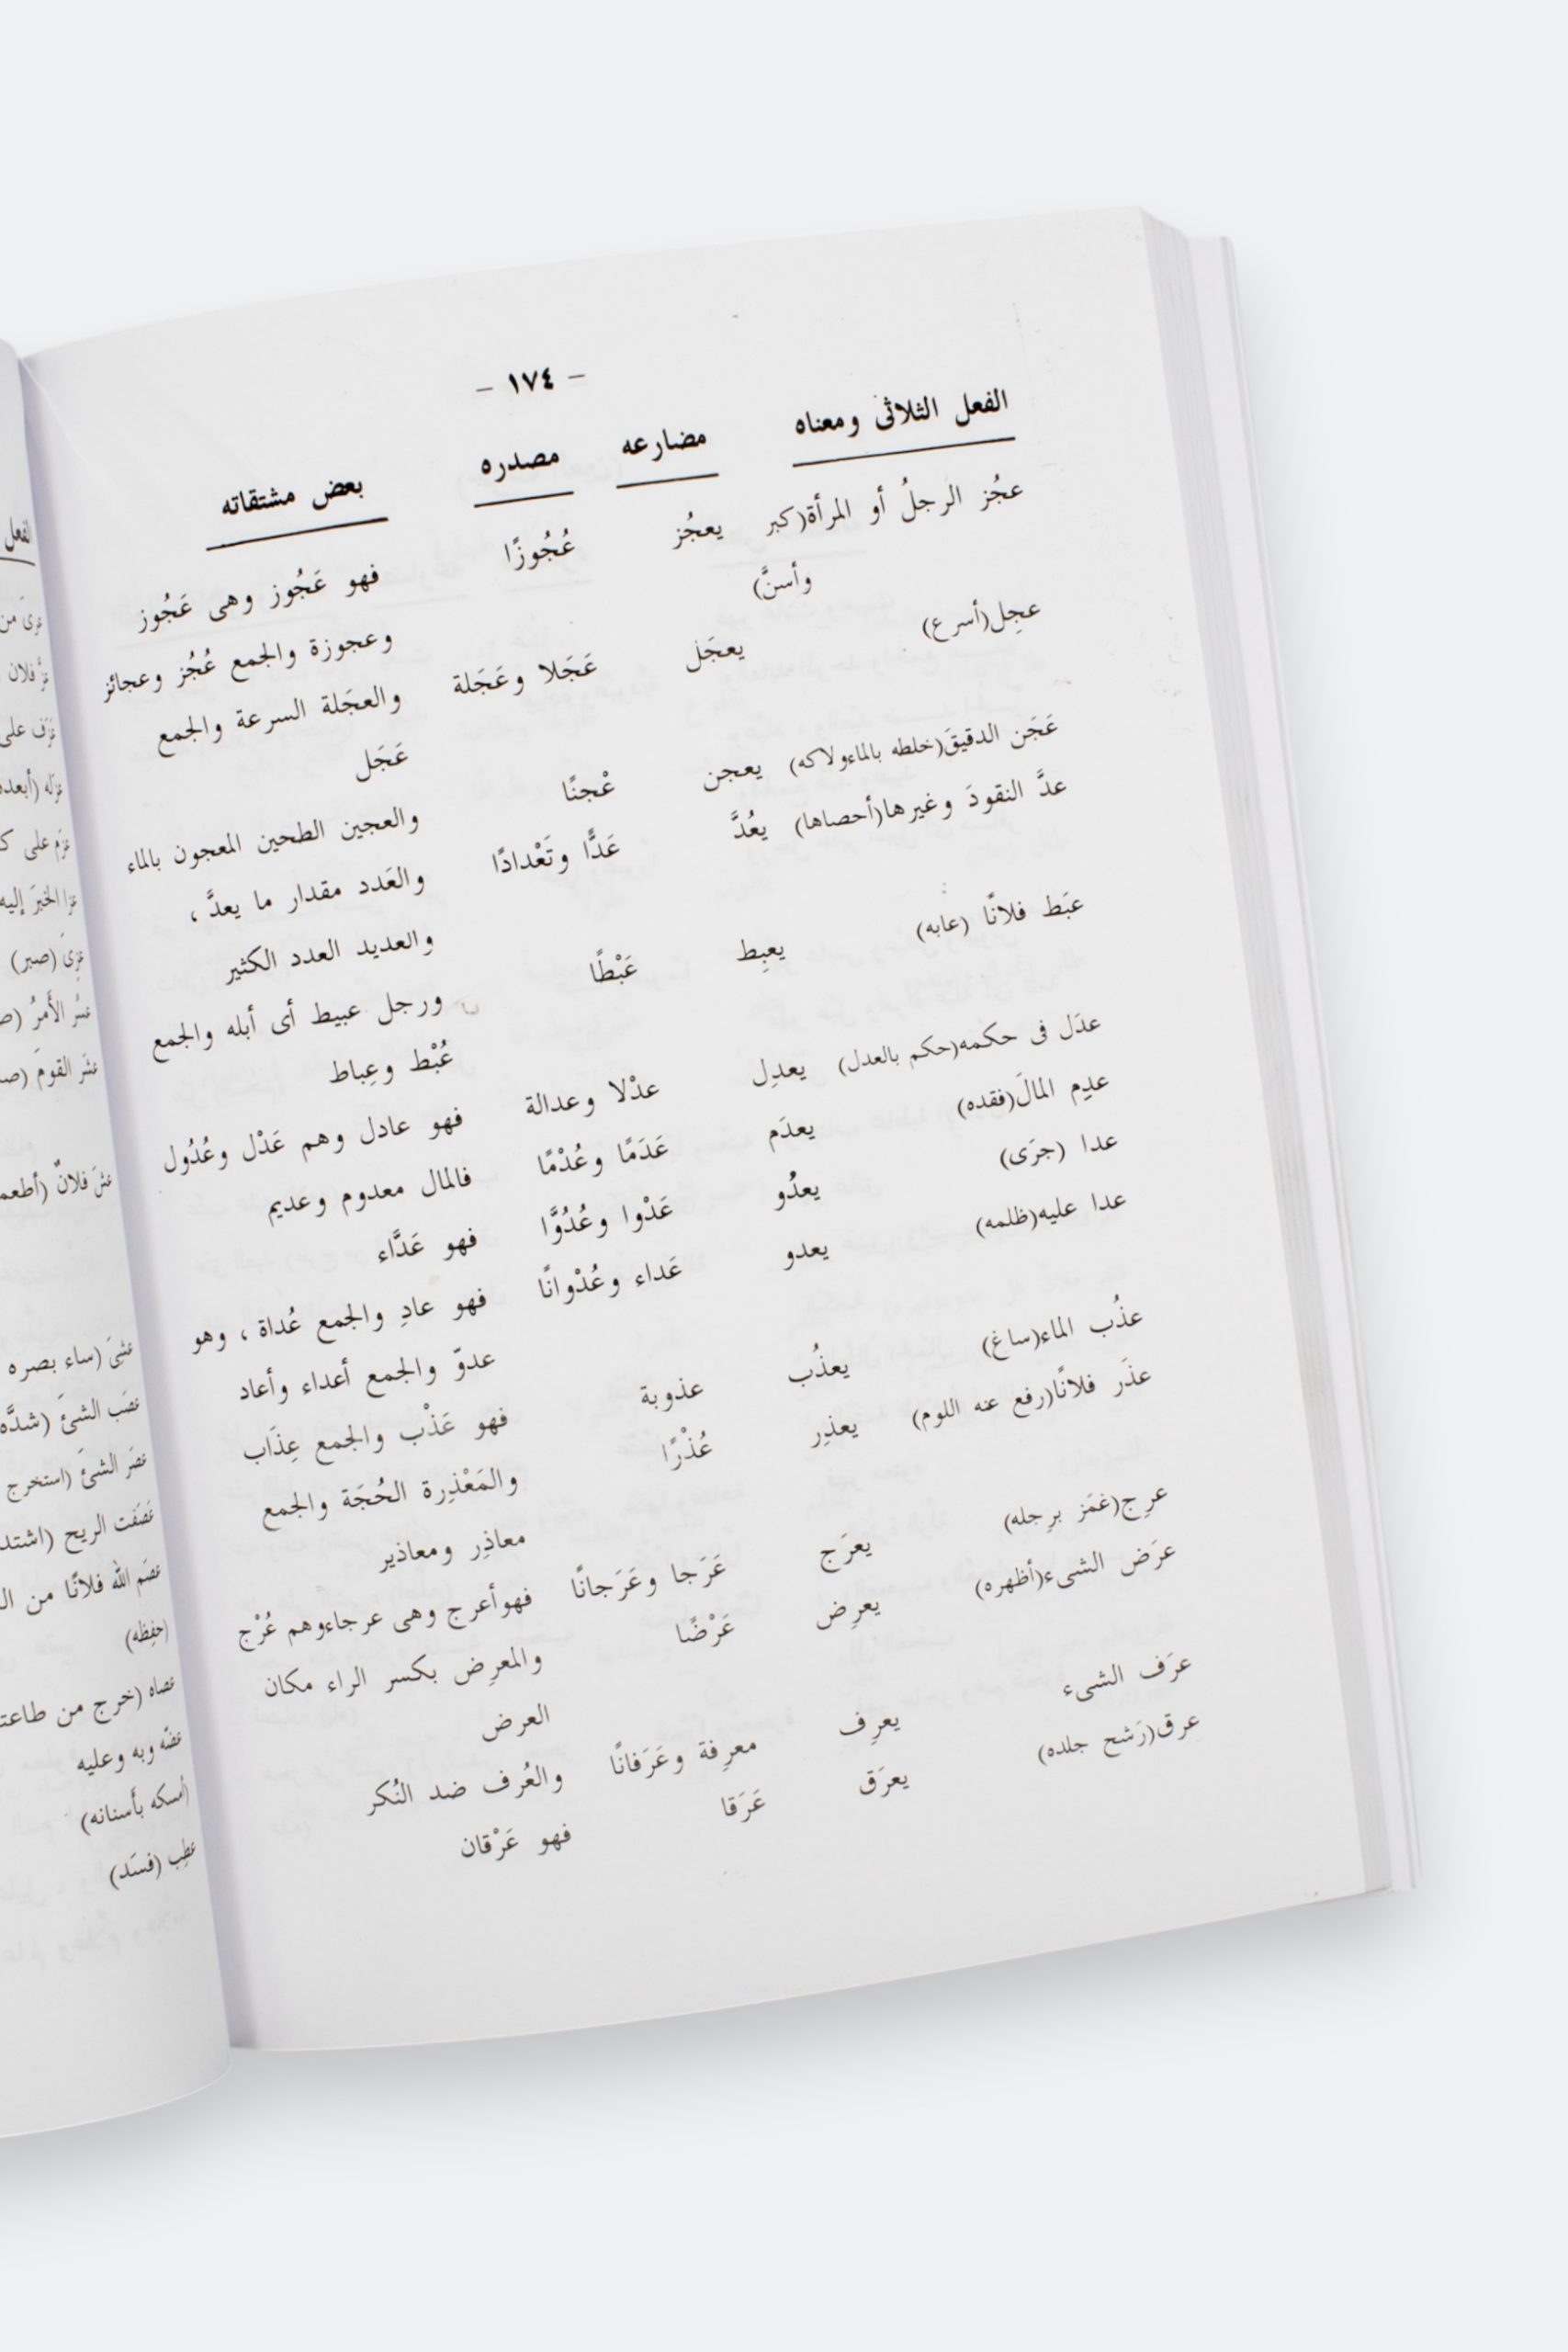 - ١٧٤ -
الفعل الثلاثى ومعناه مضارعه مصدره بعض مشتقاته
عجُز الرجلُ أو المرأة(كبر يعجُز عُجُوزًا فهو عَجُوز وهى عَجُوز
وأسنَّ) وعجوزة والجمع عُجُز وعجائز
عجِل(أسرع) يعجَل عَجَلا وعَجَلة والعجَلة السرعة والجمع
عَجَل
عَجَن الدقيقَ(خلطه بالماءولاكه) يعجن عْجنًا والعجين الطحين المعجون بالماء
عدَّ النقودَ وغيرها(أحصاها) يعُدَّ عَدًّا وتَعْدادًا والعَدد مقدار ما يعدَّ ،
والعديد العدد الكثير
عبَط فلانًا (عابه) يعبِط عَبْطًا ورجل عبيط أى أبله والجمع
عُبْط وعِباط
عدَل فى حكمه(حكم بالعدل) يعدِل عدْلا وعدالة فهو عادل وهم عَدْل وعُدُول
عدِم المالَ(فقده) يعدَم عَدَمًا وعُدْمًا فالمال معدوم وعديم
عدا (جرَى) يعدُو عَدْوا وعُدُوَّا فهو عَدَّاء
عدا عليه(ظلمه) يعدو عَداء وعُدْوانًا فهو عادِ والجمع عُداة ، وهو
عدوّ والجمع أعداء وأعاد
عذُب الماء(ساغ) يعذُب عذوبة فهو عَذْب والجمع عِذَاب
عذَر فلانًا(رفع عنه اللوم) يعذِر عُذْرًا والمَعْذِرة الحُجَة والجمع
معاذِر ومعاذير
عرِج(غمَز برِجله) يعرَج عَرَجا وعَرَجانًا فهوأعرج وهى عرجاءوهم عُرْج
عرَض الشىء(أظهره) يعرِض عَرْضًا والمعرِض بكسر الراء مكان
العرض
عرَف الشىء يعرِف معرِفة وعَرَفانًا والعُرف ضد النُكر
عرق(رَشح جلده) يعرَق عَرَقا فهو عَرْقان
الفعل
عرىَ من
عزَّ فلان
عزَف على
عزَله (أبعده
عزَم على
عزا الخبرَ إليه
عزِىَ (صبر)
عسُر الأَمرُ
عشَر القومَ
عشَ فلانٌ (أطعم
عشِىَ (ساء بصره
عصَب الشئَ (شدَّه
عصَر الشئَ (استخرج
عَصَفت الريح (اشتد
عصَم الله فلانًا من
(حفِظه)
عصاه (خرج من طاعته
عضّه وبه وعليه
(أمسكه بأسنانه)
عطِب (فسَد)